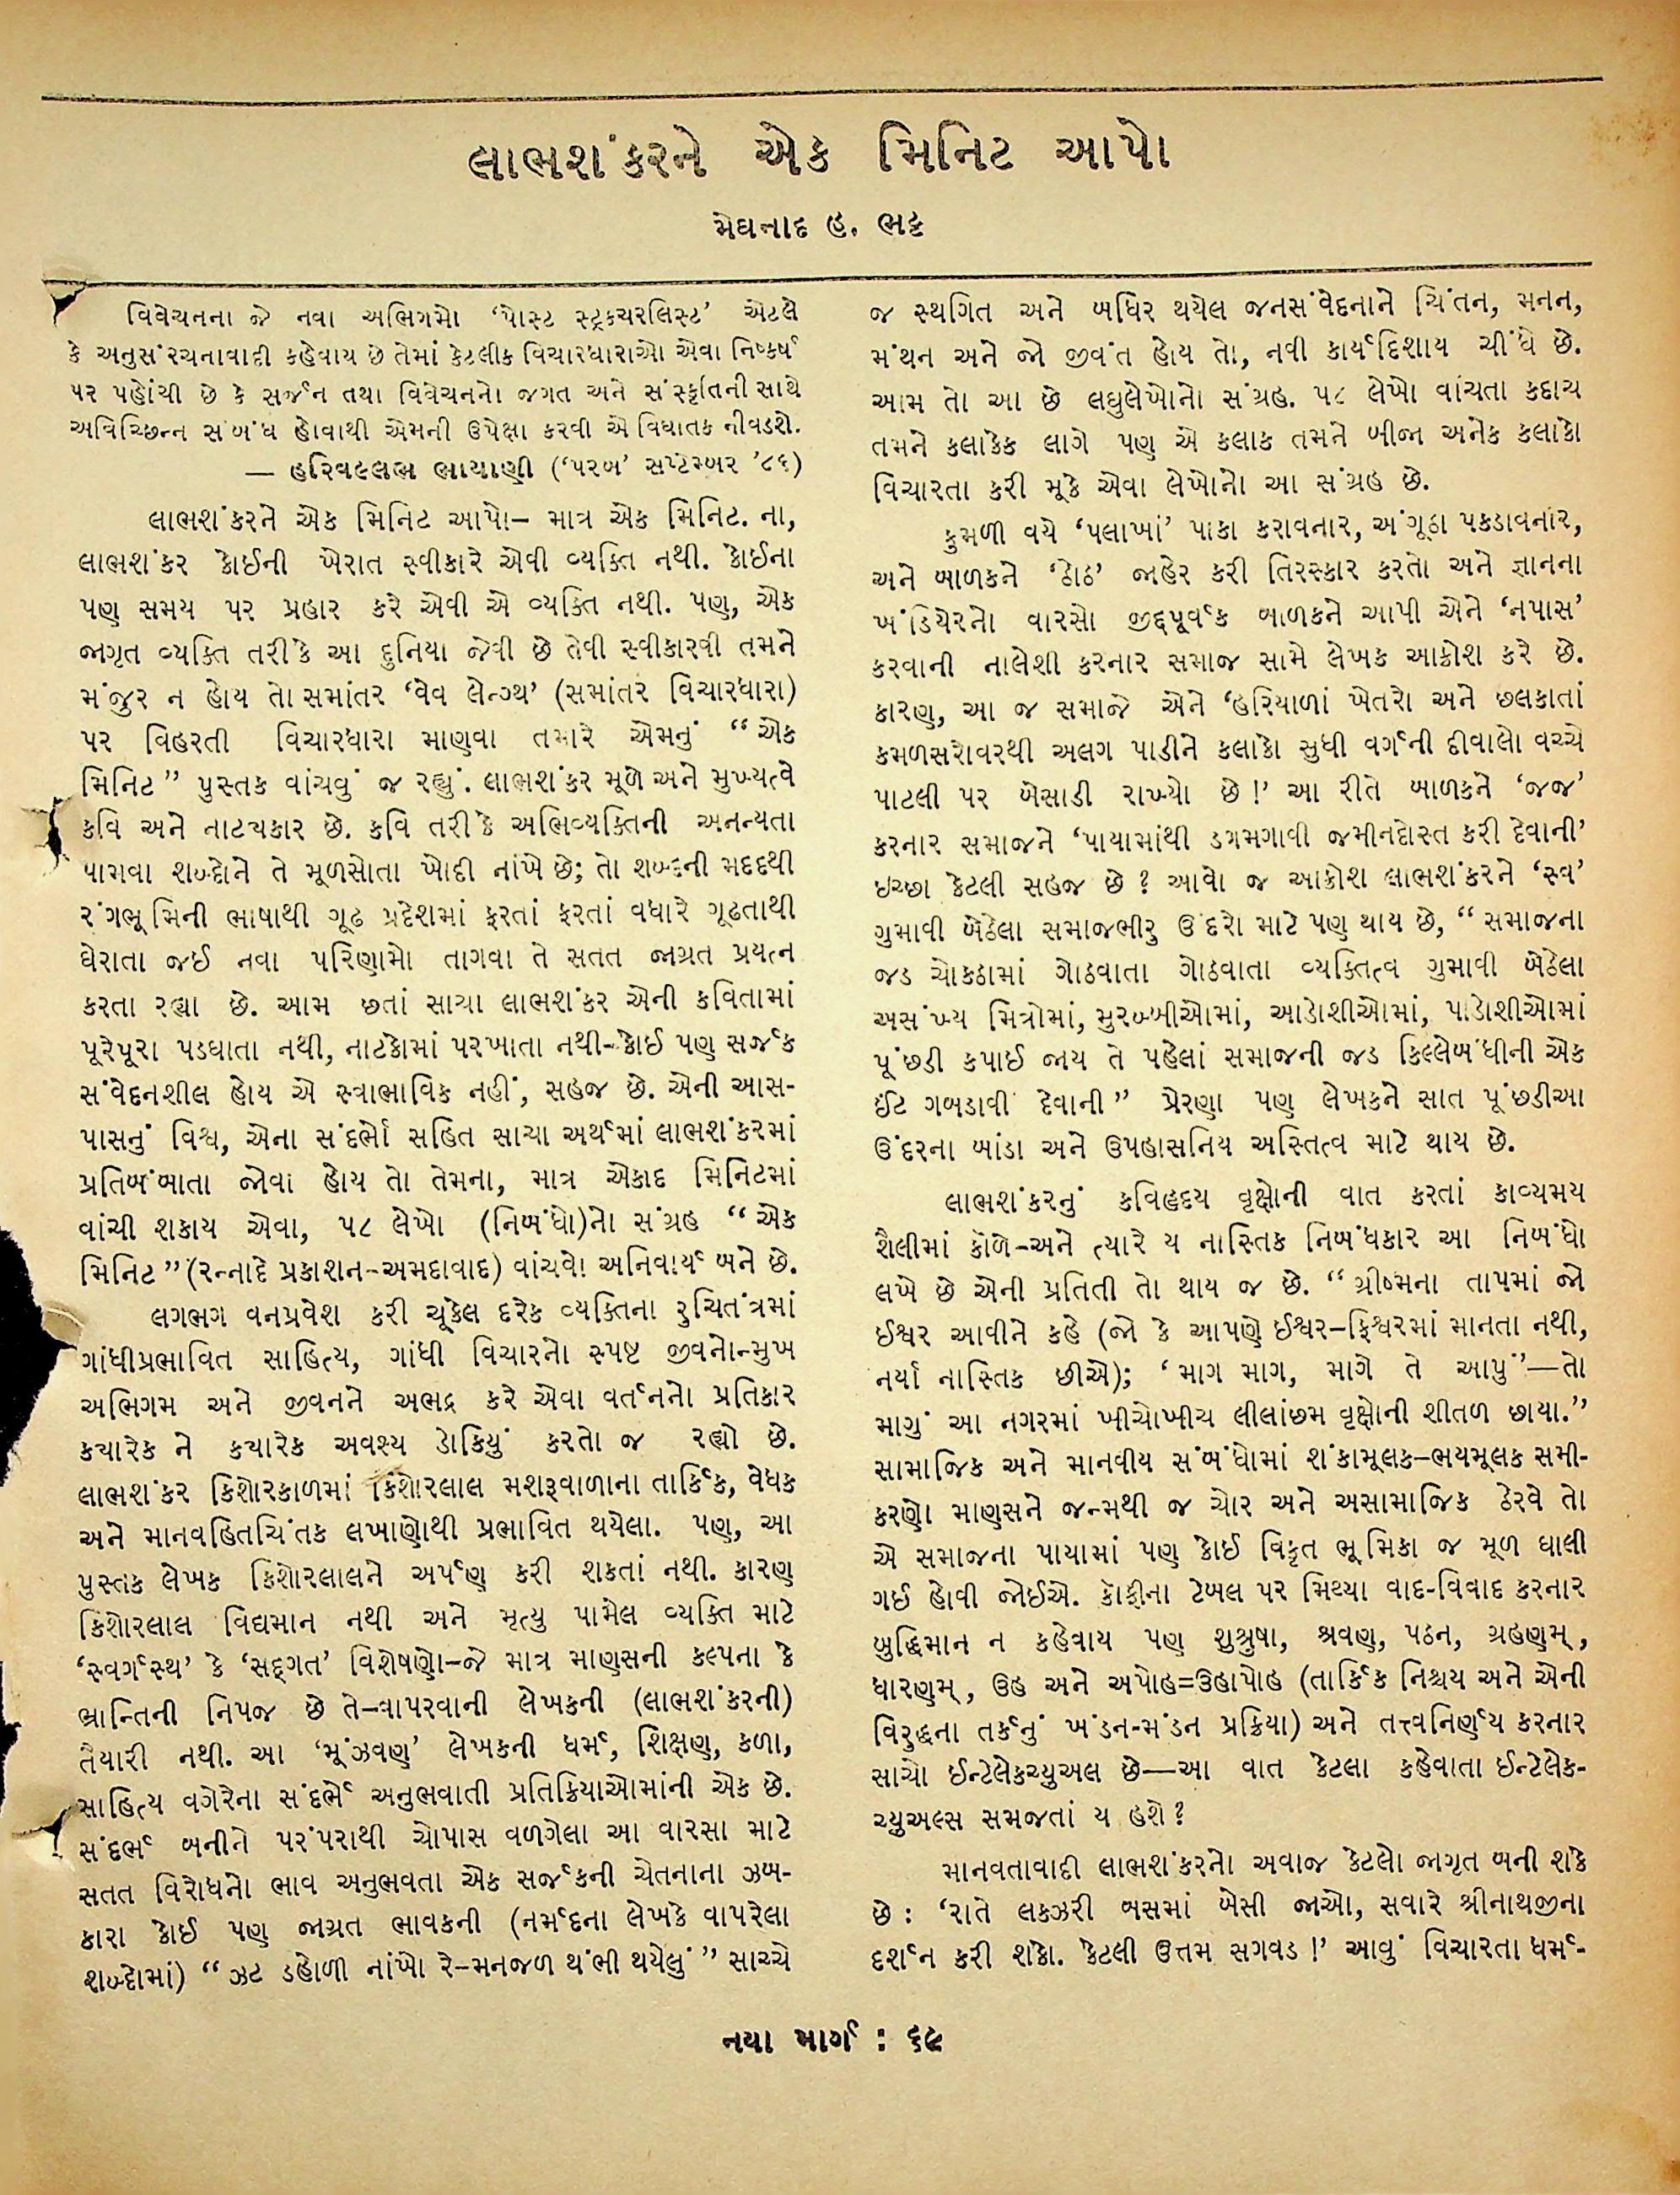 લાભશંકરને એક મિનિટ આપો
મેઘનાદ હ. ભટ્ટ
વિવેચનના જે નવા અભિગમો ‘પોસ્ટ સ્ટ્રક્ચરલિસ્ટ’ એટલે
કે અનુસંરચનાવાદી કહેવાય છે તેમાં કેટલીક વિચારધારાઓ એવા નિષ્કર્ષ
પર પહોંચી છે કે સર્જન તથા વિવેચનનો જગત અને સંસ્કૃતિની સાથે
અવિચ્છિન્ન સંબંધ હોવાથી એમની ઉપેક્ષા કરવી એ વિઘાતક નીવડશે.
— હરિવલ્લભ ભાયાણી (‘પરબ’ સપ્ટેમ્બર ’૮૬)
લાભશંકરને એક મિનિટ આપો– માત્ર એક મિનિટ. ના,
લાભશંકર કોઈની ખેરાત સ્વીકારે એવી વ્યક્તિ નથી. કોઈના
પણ સમય પર પ્રહાર કરે એવી એ વ્યક્તિ નથી. પણ, એક
જાગૃત વ્યક્તિ તરીકે આ દુનિયા જેવી છે તેવી સ્વીકારવી તમને
મંજુર ન હોય તો સમાંતર ‘વેવ લેન્ગ્થ’ (સમાંતર વિચારધારા)
પર વિહરતી વિચારધારા માણવા તમારે એમનું “એક
મિનિટ” પુસ્તક વાંચવું જ રહ્યું. લાભશંકર મૂળે અને મુખ્યત્વે
કવિ અને નાટ્યકાર છે. કવિ તરીકે અભિવ્યક્તિની અનન્યતા
પામવા શબ્દોને તે મૂળસોતા ખોદી નાંખે છે; તો શબ્દની મદદથી
રંગભૂમિની ભાષાથી ગૂઢ પ્રદેશમાં ફરતાં ફરતાં વધારે ગૂઢતાથી
ઘેરાતા જઈ નવા પરિણામો તાગવા તે સતત જાગ્રત પ્રયત્ન
કરતા રહ્યા છે. આમ છતાં સાચા લાભશંકર એની કવિતામાં
પૂરેપૂરા પડઘાતા નથી, નાટકોમાં પરખાતા નથી–કોઈ પણ સર્જક
સંવેદનશીલ હોય એ સ્વાભાવિક નહીં, સહજ છે. એની આસ-
પાસનું વિશ્વ, એના સંદર્ભો સહિત સાચા અર્થમાં લાભશંકરમાં
પ્રતિબંબાતા જોવા હોય તો તેમના, માત્ર એકાદ મિનિટમાં
વાંચી શકાય એવા, ૫૮ લેખો (નિબંધો)નો સંગ્રહ “એક
મિનિટ” (રન્નાદે પ્રકાશન–અમદાવાદ) વાંચવો અનિવાર્ય બને છે.
લગભગ વનપ્રવેશ કરી ચૂકેલ દરેક વ્યક્તિના રુચિતંત્રમાં
ગાંધીપ્રભાવિત સાહિત્ય, ગાંધી વિચારનો સ્પષ્ટ જીવનોન્મુખ
અભિગમ અને જીવનને અભદ્ર કરે એવા વર્તનનો પ્રતિકાર
ક્યારેક ને ક્યારેક અવશ્ય ડોકિયું કરતો જ રહ્યો છે.
લાભશંકર કિશોરકાળમાં કિશોરલાલ મશરૂવાળાના તાર્કિક, વેધક
અને માનવહિતચિંતક લખાણોથી પ્રભાવિત થયેલા. પણ, આ
પુસ્તક લેખક કિશોરલાલને અર્પણ કરી શકતાં નથી. કારણ
કિશોરલાલ વિદ્યમાન નથી અને મૃત્યુ પામેલ વ્યક્તિ માટે
‘સ્વર્ગસ્થ’ કે ‘સદ્ગત’ વિશેષણો–જે માત્ર માણસની કલ્પના કે
ભ્રાન્તિની નિપજ છે તે–વાપરવાની લેખકની (લાભશંકરની)
તૈયારી નથી. આ ‘મૂંઝવણ’ લેખકની ધર્મ, શિક્ષણ, કળા,
સાહિત્ય વગેરેના સંદર્ભે અનુભવાતી પ્રતિક્રિયાઓમાંની એક છે.
સંદર્ભ બનીને પરંપરાથી ચોપાસ વળગેલા આ વારસા માટે
સતત વિરોધનો ભાવ અનુભવતા એક સર્જકની ચેતનાના ઝબ-
કારા કોઈ પણ જાગ્રત ભાવકની (નર્મદના લેખકે વાપરેલા
શબ્દોમાં) “ઝટ ડહોળી નાંખો રે–મનજળ થંભી થયેલું” સાચ્ચે
જ સ્થગિત અને બધિર થયેલ જનસંવેદનાને ચિંતન, મનન,
મંથન અને જો જીવંત હોય તો, નવી કાર્યદિશાય ચીંધે છે.
આમ તો આ છે લઘુલેખોનો સંગ્રહ. ૫૮ લેખો વાંચતા કદાચ
તમને કલાકેક લાગે પણ એ કલાક તમને બીજા અનેક કલાકો
વિચારતા કરી મૂકે એવા લેખોનો આ સંગ્રહ છે.
કુમળી વયે ‘પલાખાં’ પાકા કરાવનાર, અંગૂઠા પકડાવનાર,
અને બાળકને ‘ઠોઠ’ જાહેર કરી તિરસ્કાર કરતો અને જ્ઞાનના
ખંડિયેરનો વારસો જીદ્દપૂર્વક બાળકને આપી એને ‘નપાસ’
કરવાની નાલેશી કરનાર સમાજ સામે લેખક આક્રોશ કરે છે.
કારણ, આ જ સમાજે એને ‘હરિયાળાં ખેતરો અને છલકાતાં
કમળસરોવરથી અલગ પાડીને કલાકો સુધી વર્ગની દીવાલો વચ્ચે
પાટલી પર બેસાડી રાખ્યો છે !’ આ રીતે બાળકને ‘જજ’
કરનાર સમાજને ‘પાયામાંથી ડગમગાવી જમીનદોસ્ત કરી દેવાની’
ઇચ્છા કેટલી સહજ છે ? આવો જ આક્રોશ લાભશંકરને ‘સ્વ’
ગુમાવી બેઠેલા સમાજભીરુ ઉંદરો માટે પણ થાય છે, “સમાજના
જડ ચોકઠામાં ગોઠવાતા ગોઠવાતા વ્યક્તિત્વ ગુમાવી બેઠેલા
અસંખ્ય મિત્રોમાં, મુરબ્બીઓમાં, આડોશીઓમાં, પાડોશીઓમાં
પૂંછડી કપાઈ જાય તે પહેલાં સમાજની જડ કિલ્લેબંધીની એક
ઈંટ ગબડાવી દેવાની” પ્રેરણા પણ લેખકને સાત પૂંછડીઆ
ઉંદરના બાંડા અને ઉપહાસનિય અસ્તિત્વ માટે થાય છે.
લાભશંકરનું કવિહૃદય વૃક્ષોની વાત કરતાં કાવ્યમય
શૈલીમાં કોળે–અને ત્યારે ય નાસ્તિક નિબંધકાર આ નિબંધો
લખે છે એની પ્રતિતી તો થાય જ છે. “ગ્રીષ્મના તાપમાં જો
ઈશ્વર આવીને કહે (જો કે આપણે ઈશ્વર–ફિશ્વરમાં માનતા નથી,
નર્યા નાસ્તિક છીએ); ‘માગ માગ, માગે તે આપું’—તો
માગું આ નગરમાં ખીચોખીચ લીલાંછમ વૃક્ષોની શીતળ છાયા.”
સામાજિક અને માનવીય સંબંધોમાં શંકામૂલક–ભયમૂલક સમી-
કરણો માણસને જન્મથી જ ચોર અને અસામાજિક ઠેરવે તો
એ સમાજના પાયામાં પણ કોઈ વિકૃત ભૂમિકા જ મૂળ ઘાલી
ગઈ હોવી જોઈએ. કૉફીના ટેબલ પર મિથ્યા વાદ-વિવાદ કરનાર
બુદ્ધિમાન ન કહેવાય પણ શુશ્રુષા, શ્રવણ, પઠન, ગ્રહણમ્,
ધારણમ્, ઉહ અને અપોહ=ઉહાપોહ (તાર્કિક નિશ્ચય અને એની
વિરુદ્ધના તર્કનું ખંડન-મંડન પ્રક્રિયા) અને તત્ત્વનિર્ણય કરનાર
સાચો ઈન્ટેલેક્ચ્યુઅલ છે—આ વાત કેટલા કહેવાતા ઈન્ટેલેક-
ચ્યુઅલ્સ સમજતાં ય હશે ?
માનવતાવાદી લાભશંકરનો અવાજ કેટલો જાગૃત બની શકે
છે : ‘રાતે લકઝરી બસમાં બેસી જાઓ, સવારે શ્રીનાથજીના
દર્શન કરી શકો. કેટલી ઉત્તમ સગવડ !’ આવું વિચારતા ધર્મ-
નયા માર્ગ : ૬૯